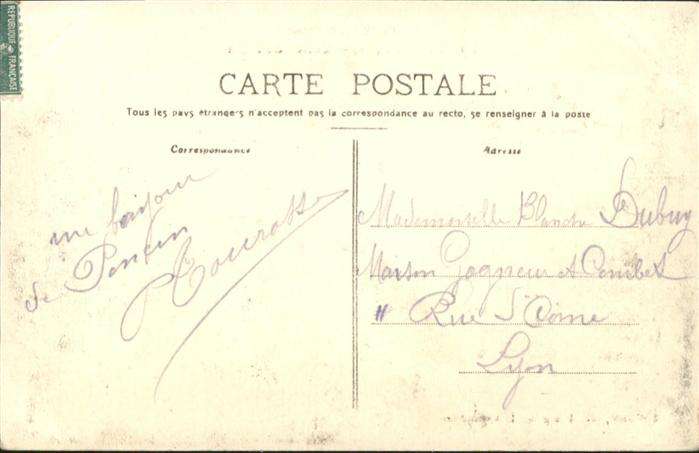 REPUBLIQUE FRANÇAISE
CARTE POSTALE
Tous les pays étrangers n'acceptent pas la correspondance au recto, se renseigner à la poste
Correspondance
un bonjour
de
Adresse
Mademoiselle Blanche Dubuy
Maison Gagneur et Combet
11 Rue St Côme
Lyon